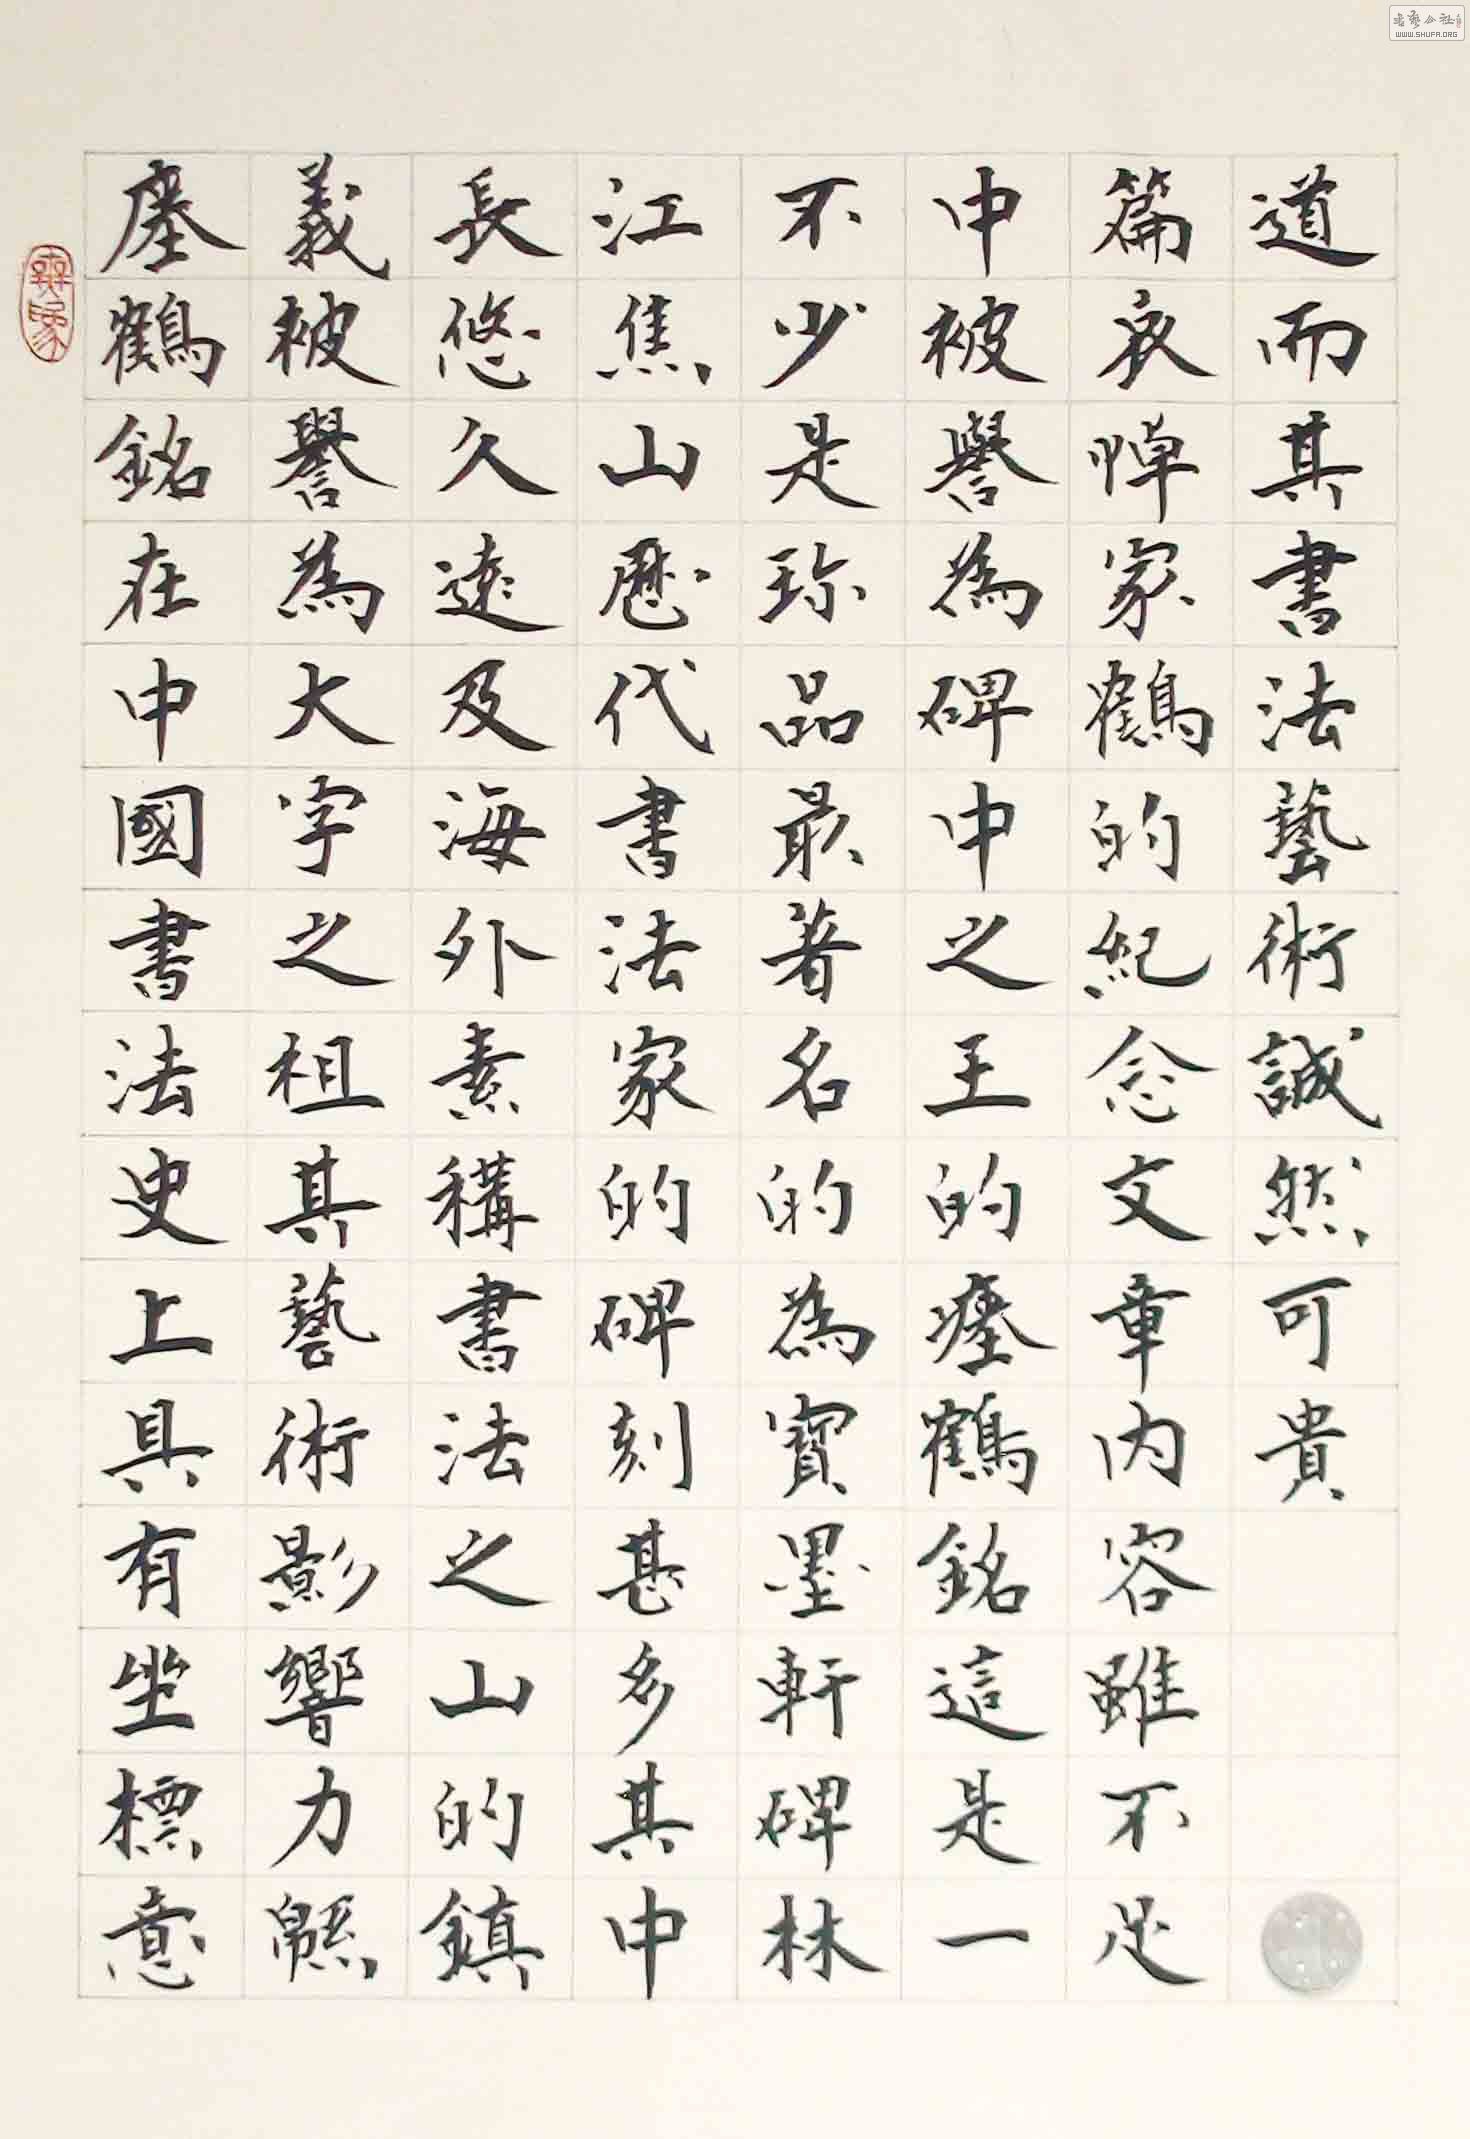 瘞鶴銘在中國書法史上具有坐標意
義被譽為大字之祖其藝術影響力緜
長悠久遠及海外素稱書法之山的鎮
江焦山歷代書法家的碑刻甚多其中
不少是珍品最著名的為寶墨軒碑林
中被譽為碑中之王的瘞鶴銘這是一
篇哀悼家鶴的紀念文章內容雖不足
道而其書法藝術誠然可貴
书艺公社
WWW.SHUFA.ORG